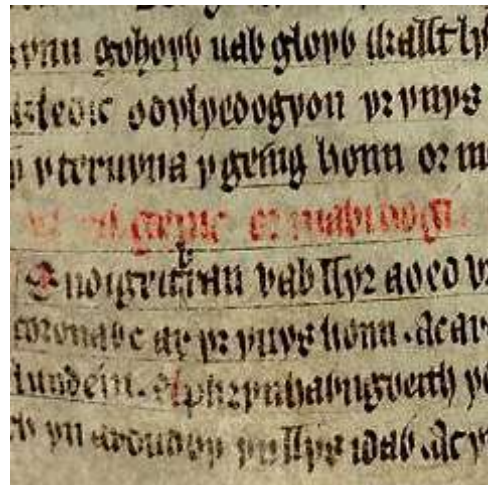 gohoyỽ uab gloyỽ ỽallt ly
ỽledic o dylyedogyon yr ynys
y teruyna y geing honn or m
geinc or mabinogi
endigeituran vab llyr a oed v
coronaỽc ar yr ynys honn. Acar
lundein. A phrynhaỽngỽeith y
yn ardudỽy yn llys idaỽ. Ac y